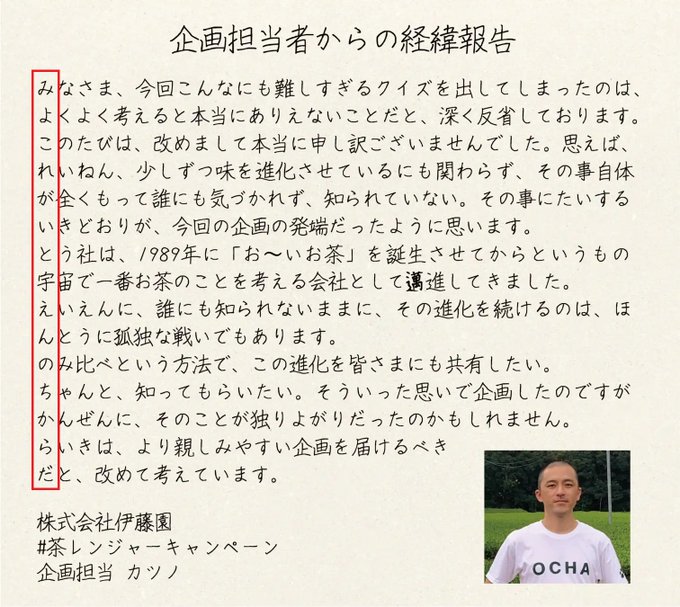 企画担当者からの経緯報告
みなさま、今回こんなにも難しすぎるクイズを出してしまったのは、
よくよく考えると本当にありえないことだと、深く反省しております。
このたびは、改めまして本当に申し訳ございませんでした。思えば、
れいねん、少しずつ味を進化させているにも関わらず、その事自体
が全くもって誰にも気づかれず、知られていない。その事にたいする
いきどおりが、今回の企画の発端だったように思います。
とう社は、1989年に「お〜いお茶」を誕生させてからというもの
宇宙で一番お茶のことを考える会社として邁進してきました。
えいえんに、誰にも知られないままに、その進化を続けるのは、ほ
んとうに孤独な戦いでもあります。
のみ比べという方法で、この進化を皆さまにも共有したい。
ちゃんと、知ってもらいたい。そういった思いで企画したのですが
かんぜんに、そのことが独りよがりだったのかもしれません。
らいきは、より親しみやすい企画を届けるべき
だと、改めて考えています。
株式会社伊藤園
#茶レンジャーキャンペーン
企画担当 カツノ
OCHA